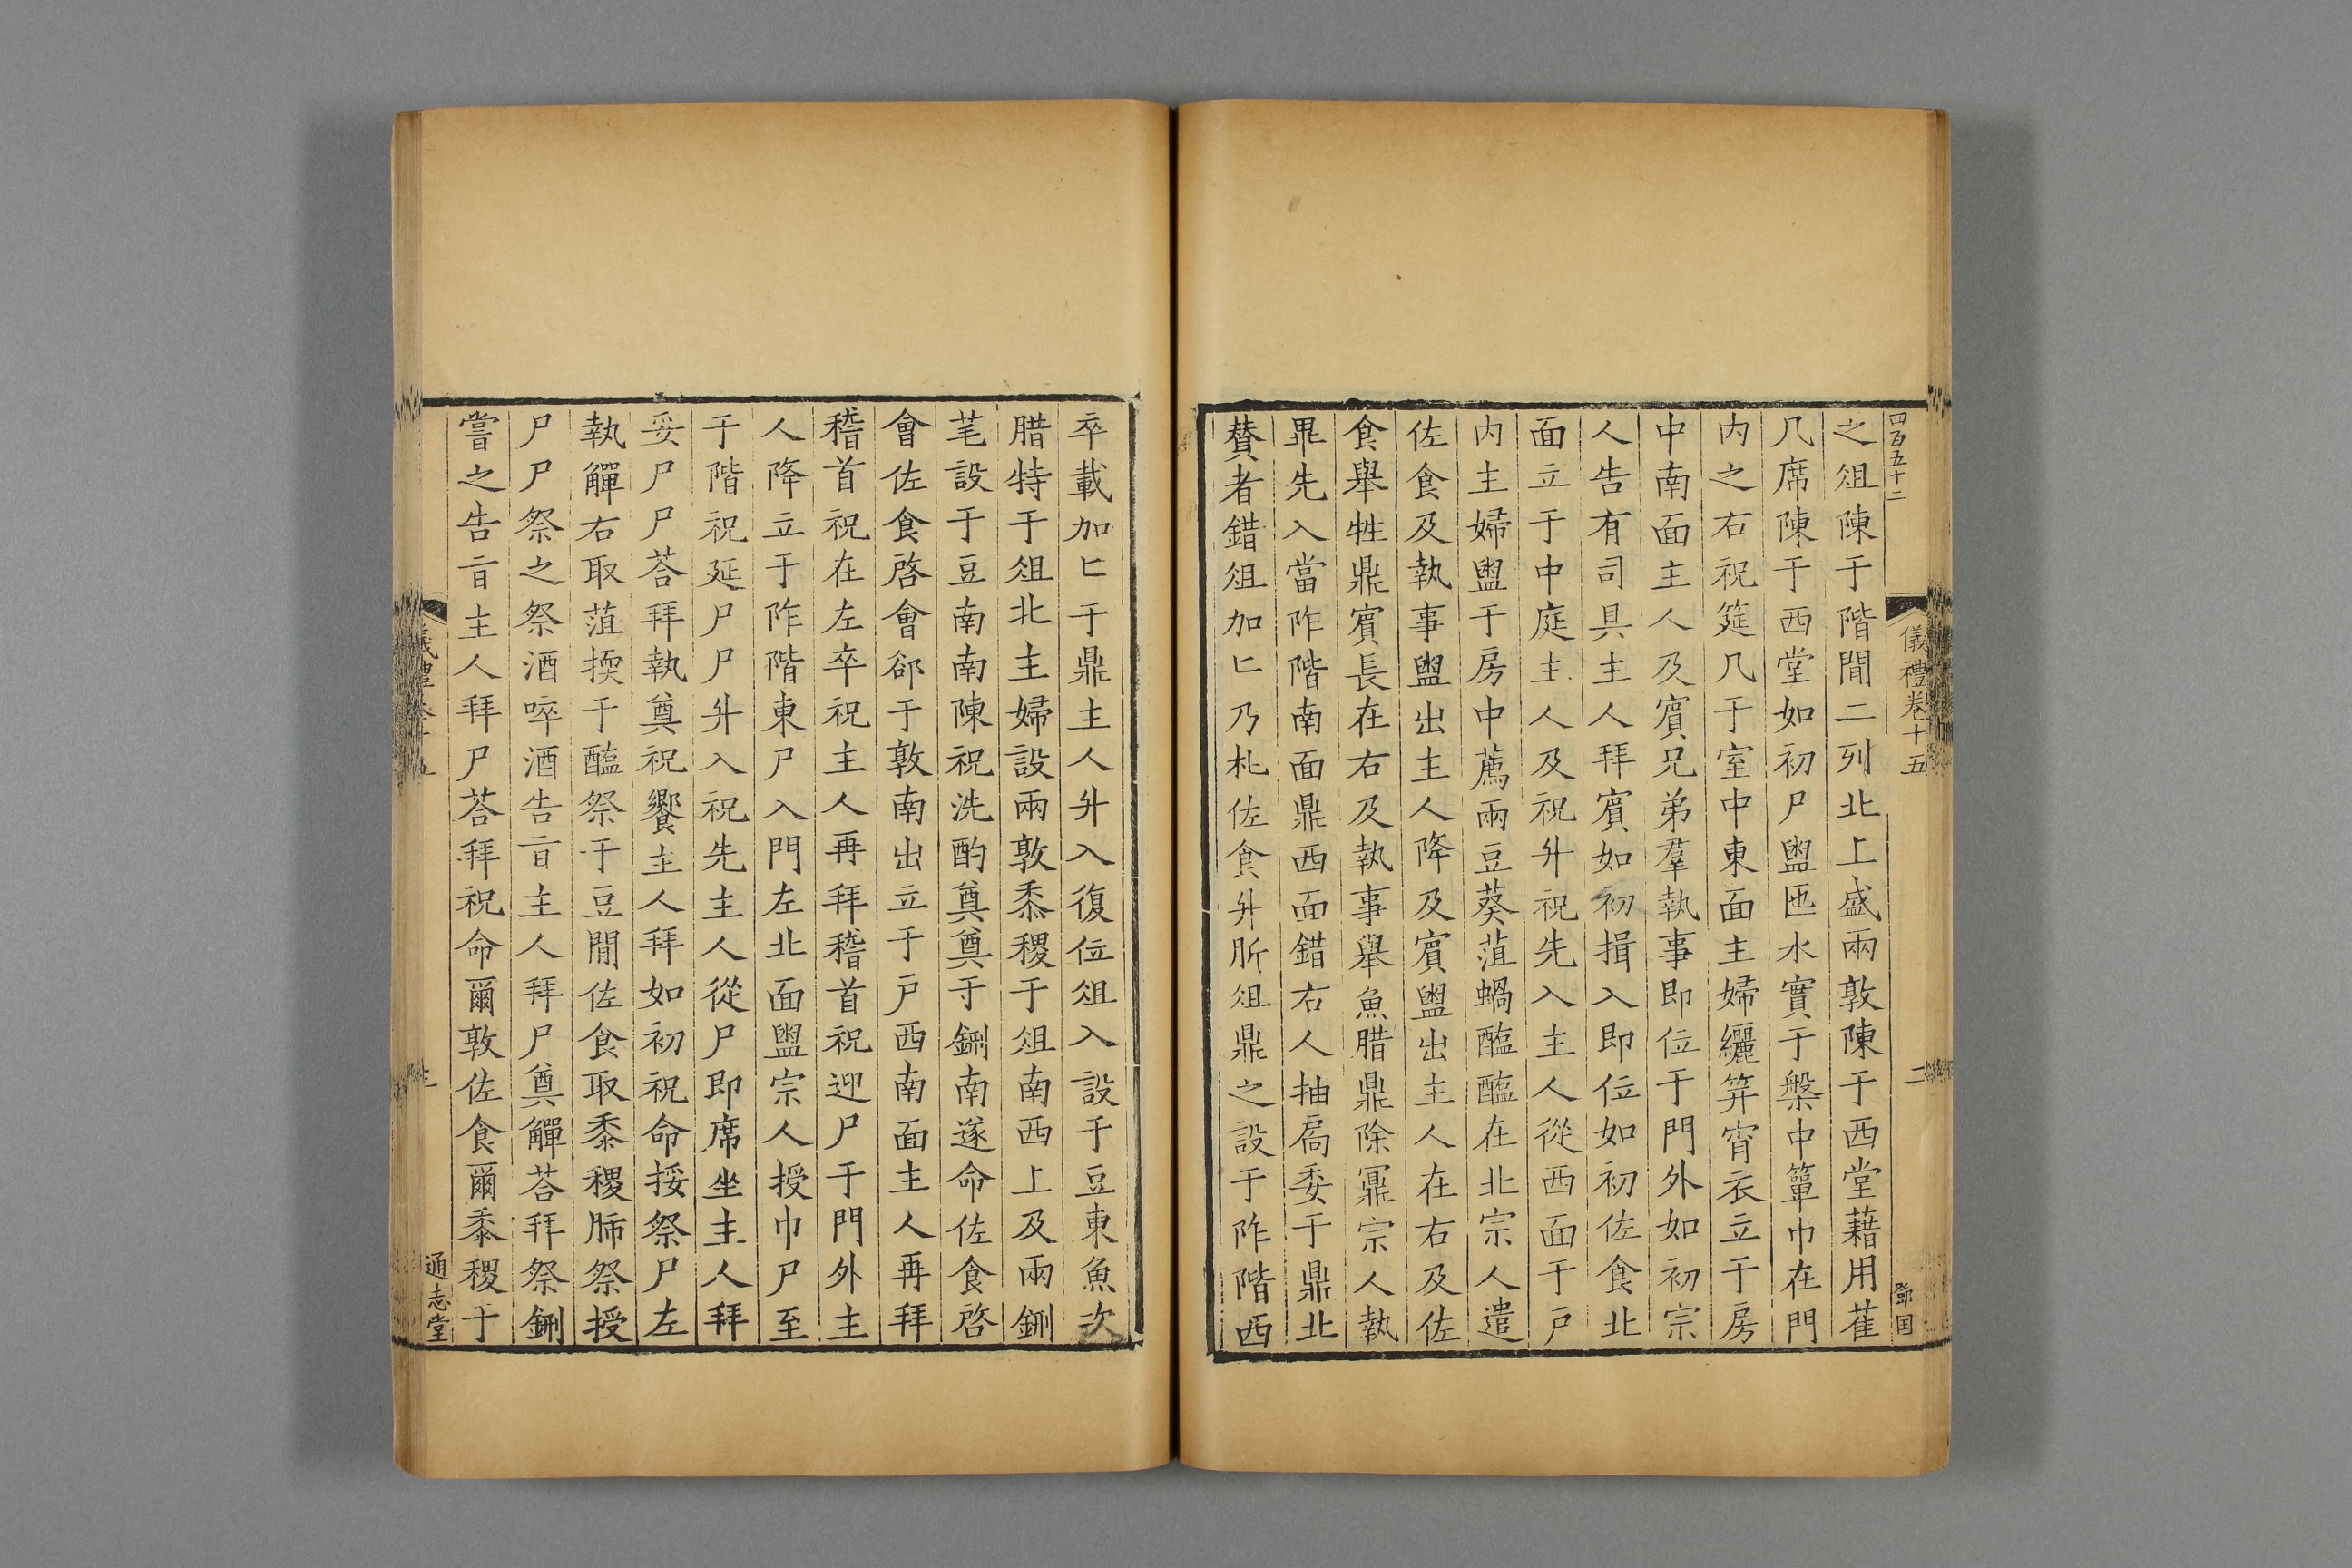 四百五十二
儀禮卷十五
二
鄧国
之俎陳于階閒二列北上盛兩敦陳于西堂藉用萑
几席陳于西堂如初尸盥匜水實于槃中簞巾在門
內之右祝筵几于室中東面主婦纚笄宵衣立于房
中南面主人及賔兄弟羣執事即位于門外如初宗
人告有司具主人拜賔如初揖入即位如初佐食北
面立于中庭主人及祝升祝先入主人從西面于戸
內主婦盥于房中薦兩豆葵菹蝸醢醢在北宗人遣
佐食及執事盥出主人降及賔盥出主人在右及佐
食舉牲鼎賔長在右及執事舉魚腊鼎除鼏宗人執
畢先入當阼階南面鼎西面錯右人抽扃委于鼎北
賛者錯俎加匕乃朼佐食升肵俎鼎之設于阼階西
卒載加匕于鼎主人升入復位俎入設于豆東魚次
腊特于俎北主婦設兩敦黍稷于俎南西上及兩鉶
芼設于豆南南陳祝洗酌奠奠于鉶南遂命佐食啓
會佐食啓會郤于敦南出立于戸西南面主人再拜
稽首祝在左卒祝主人再拜稽首祝迎尸于門外主
人降立于阼階東尸入門左北面盥宗人授巾尸至
于階祝延尸尸升入祝先主人從尸即席坐主人拜
妥尸尸荅拜執奠祝饗主人拜如初祝命挼祭尸左
執觶右取菹擩于醢祭于豆閒佐食取黍稷肺祭授
尸尸祭之祭酒啐酒告㫖主人拜尸奠觶荅拜祭鉶
嘗之告㫖主人拜尸荅拜祝命爾敦佐食爾黍稷于
通志堂